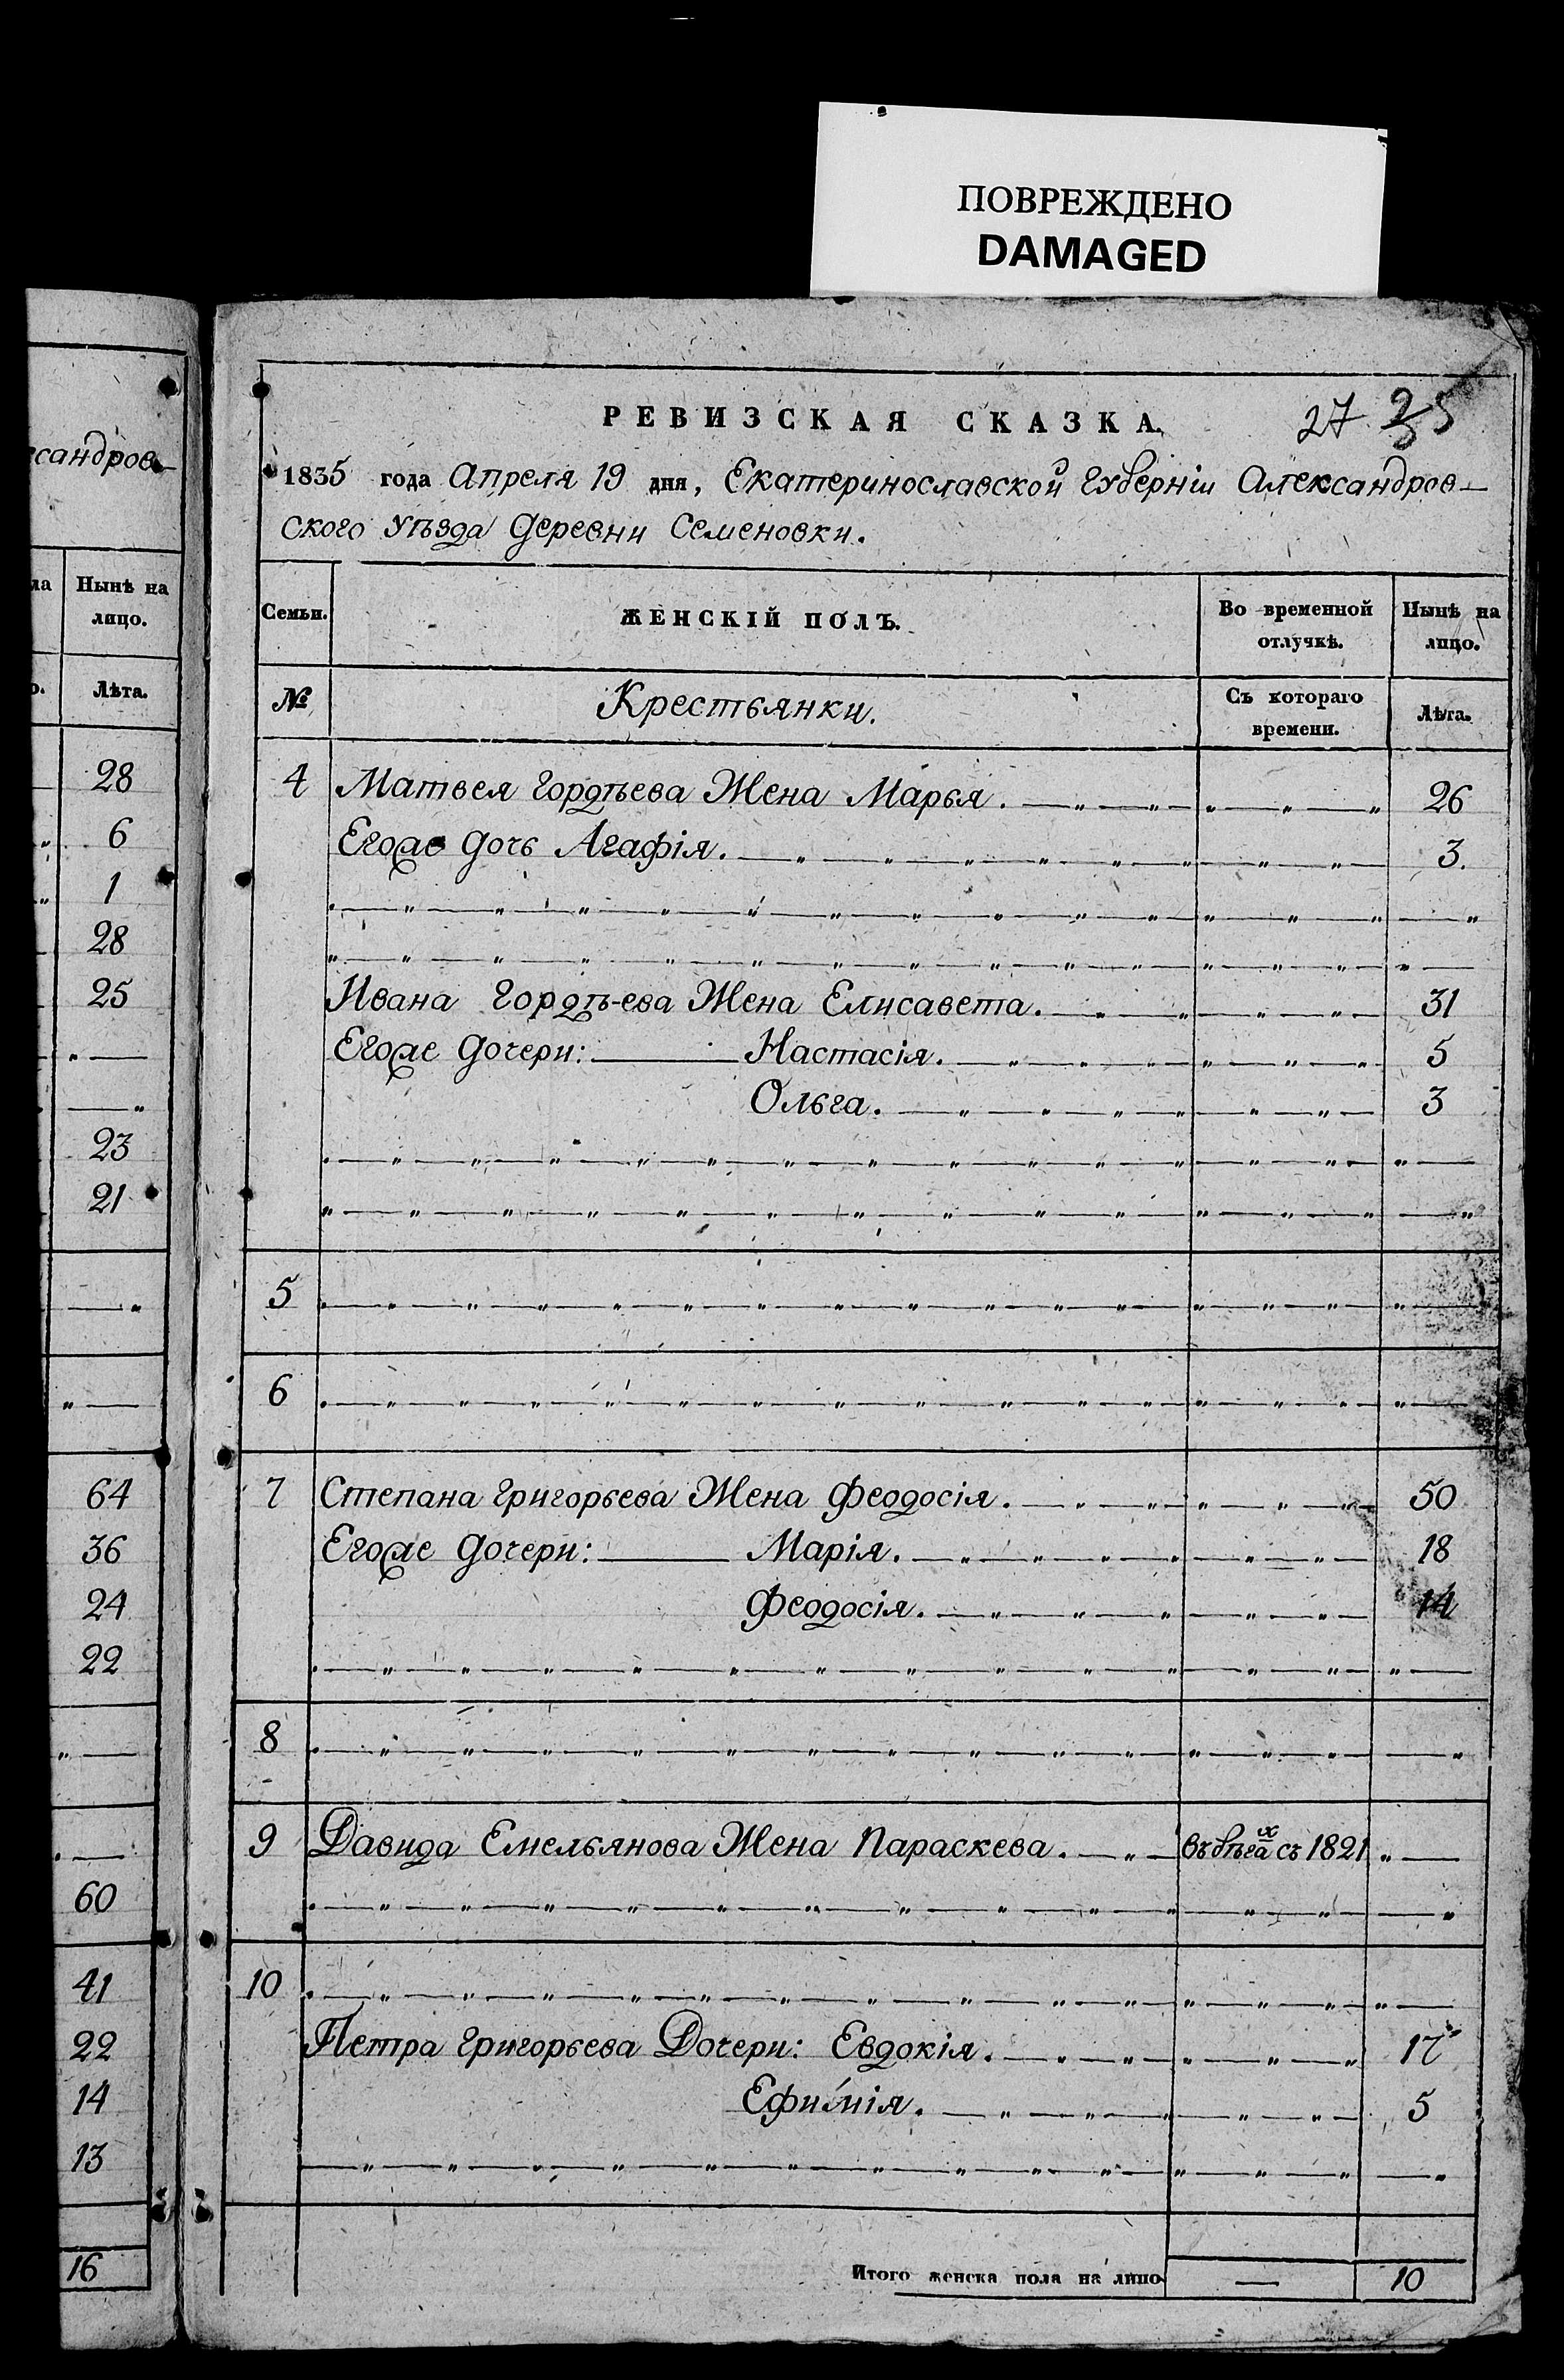 ПОВРЕЖДЕНО
DAMAGED
сандров-
ла
Нынѣ на
лицо.
о.
Лѣта.
28
6
1
28
25
23
21
64
36
24
22
60
41
22
14
13
16
РЕВИЗСКАЯ СКАЗКА.
27
35
1835 года Апреля 19 дня, Екатеринославской губерніи Александров-
ского уѣзда деревни Семеновки.
Семьи.
ЖЕНСКІЙ ПОЛЪ.
Во временной
отлучкѣ.
Нынѣ на
лицо.
№
Крестьянки.
Съ котораго
времени.
Лѣта.
4 Матвея Гордѣева Жена Марья. 26
Егоже дочь Агафія. 3.
Ивана Гордѣ-ева Жена Елисавета. 31
Егоже дочери: Настасія. 5
Ольга. 3
5
6
7 Степана Григорьева Жена Феодосія. 50
Егоже дочери: Марія. 18
Феодосія. 14
8
9 Давида Емельянова Жена Параскева. въ бѣгах съ 1821
10
Петра Григорьева Дочери: Евдокія. 17
Ефимія. 5
Итого женска пола на лицо — 10